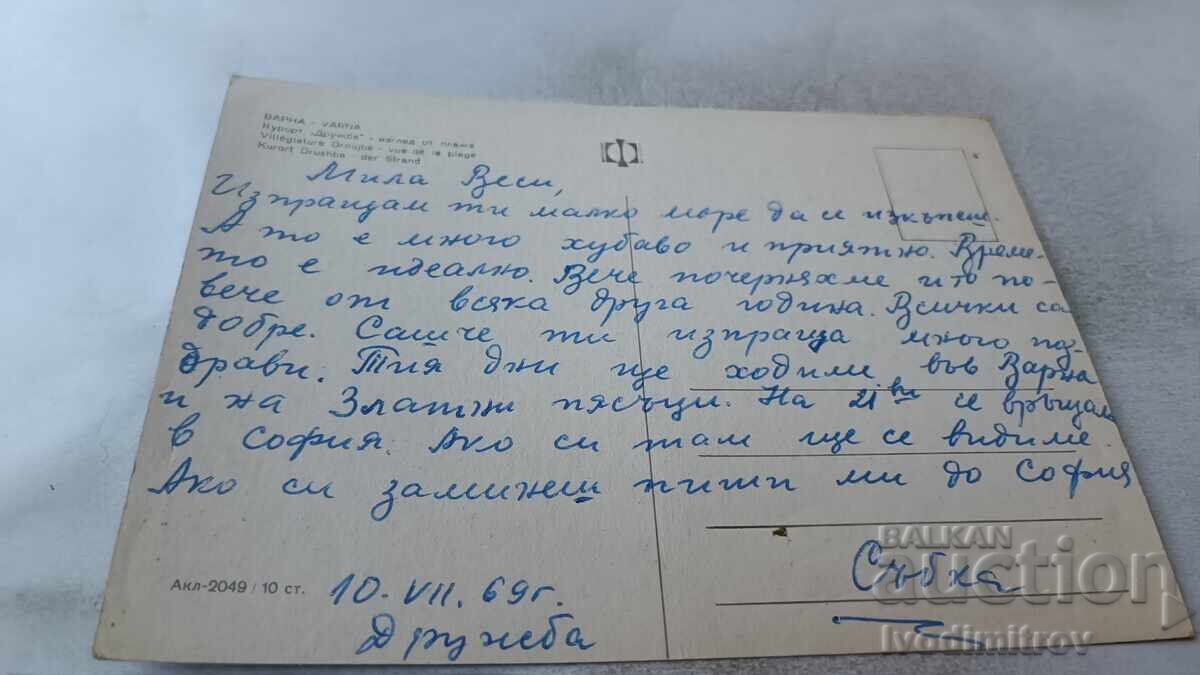 ВАРНА - VARNA
Курорт „Дружба" - изглед от плажа
Villégiature Droujba - vue de la plage
Kurort Drushba - der Strand
Мила Веси,
Изпращам ти малко море да се изкъпеш.
А то е много хубаво и приятно. Време-
то е идеално. Вече почерняхме и то по-
вече от всяка друга година. Всички са
добре. Сашче ти изпраща много поз-
драви. Тия дни ще ходим във Варна
и на Златни пясъци. На 21ви се връщам
в София. Ако си там ще се видиме.
Ако си заминеш пиши ми до София
Събка
Акл-2049 / 10 ст.
10. VII. 69г.
Дружба
BALKAN
auction
ivodimitrov